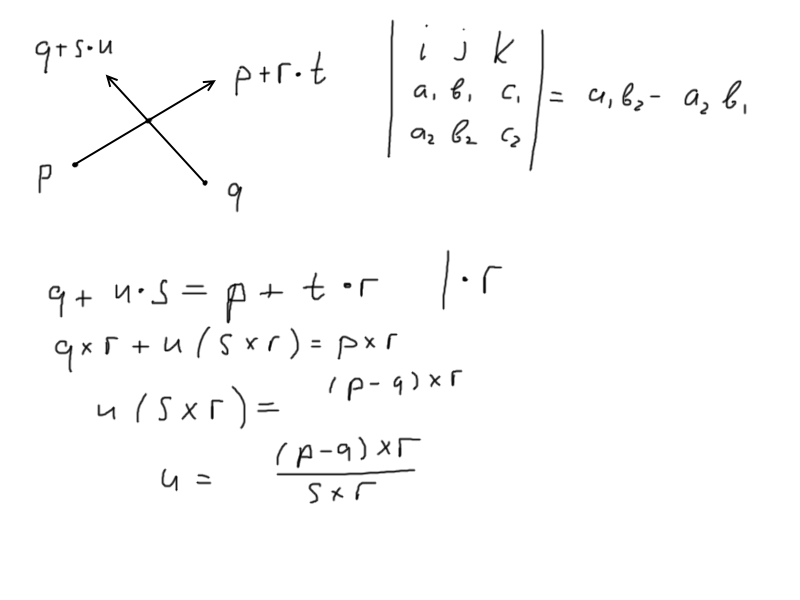 q+s·u
p+r·t
p
q
| i j k |
| a₁ b₁ c₁ | = a₁b₂ - a₂ b₁
| a₂ b₂ c₂ |
q + u·s = p + t·r |·r
q×r + u(s×r) = p×r
u(s×r) = (p-q)×r
u = (p-q)×r
s×r